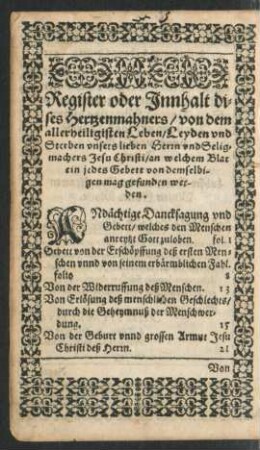 Register oder Innhalt di-
ses Hertzenmahners / von dem
allerheiligisten Leben / Leyden vnd
Sterben vnsers lieben Herrn vnd Selig-
machers Jesu Christi / an welchem Blat
ein jedes Gebett von demselbi-
gen mag gefunden wer-
den.
ANdächtige Dancksagung vnd
Gebett / welches den Menschen
anreytzt Gott zuloben. fol. 1
Gebett von der Erschöpffung deß ersten Men-
schen vnnd von seinem erbärmblichen Fahl.
folio 8
Von der Widerruffung deß Menschen. 13
Von Erlösung deß menschlichen Geschlechts /
durch die Geheymnuß der Menschwer-
dung. 15
Von der Geburt vnnd grossen Armut Jesu
Christi deß Herrn. 21
Von